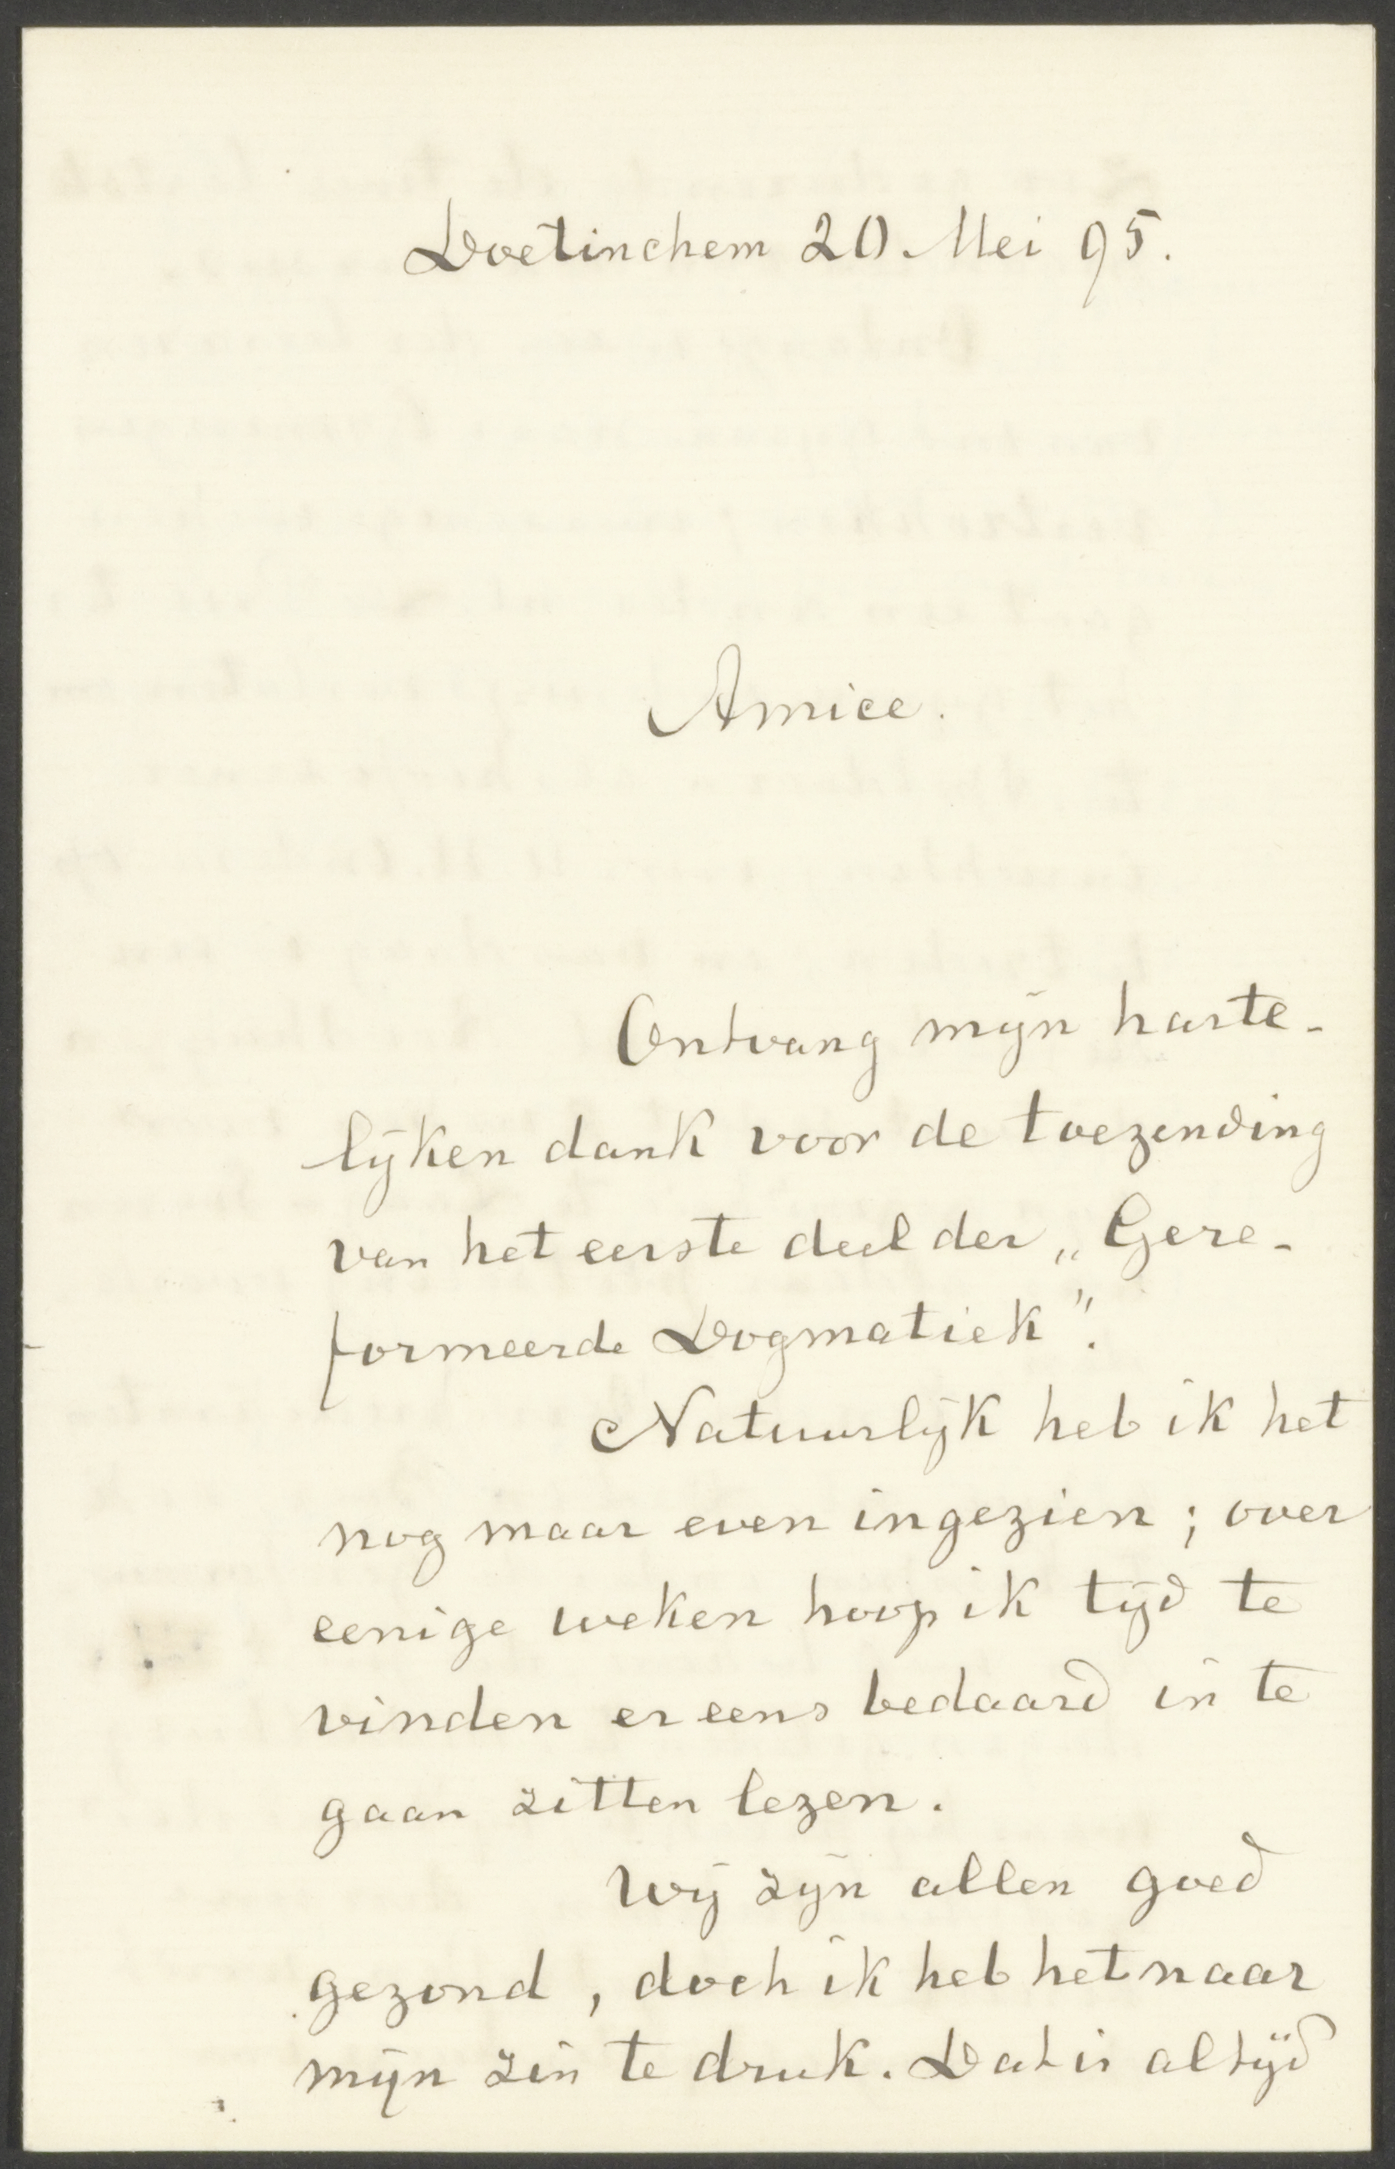 Doetinchem 20 Mei 95.
Amice.
Ontvang mijn harte-
lijken dank voor de toezending
van het eerste deel der „Gere-
formeerde Dogmatiek".
Natuurlijk heb ik het
nog maar even ingezien; over
eenige weken hoop ik tijd te
vinden er eens bedaard in te
gaan zitten lezen.
Wij zijn allen goed
gezond, doch ik heb het naar
mijn zin te druk. Dat is altijd